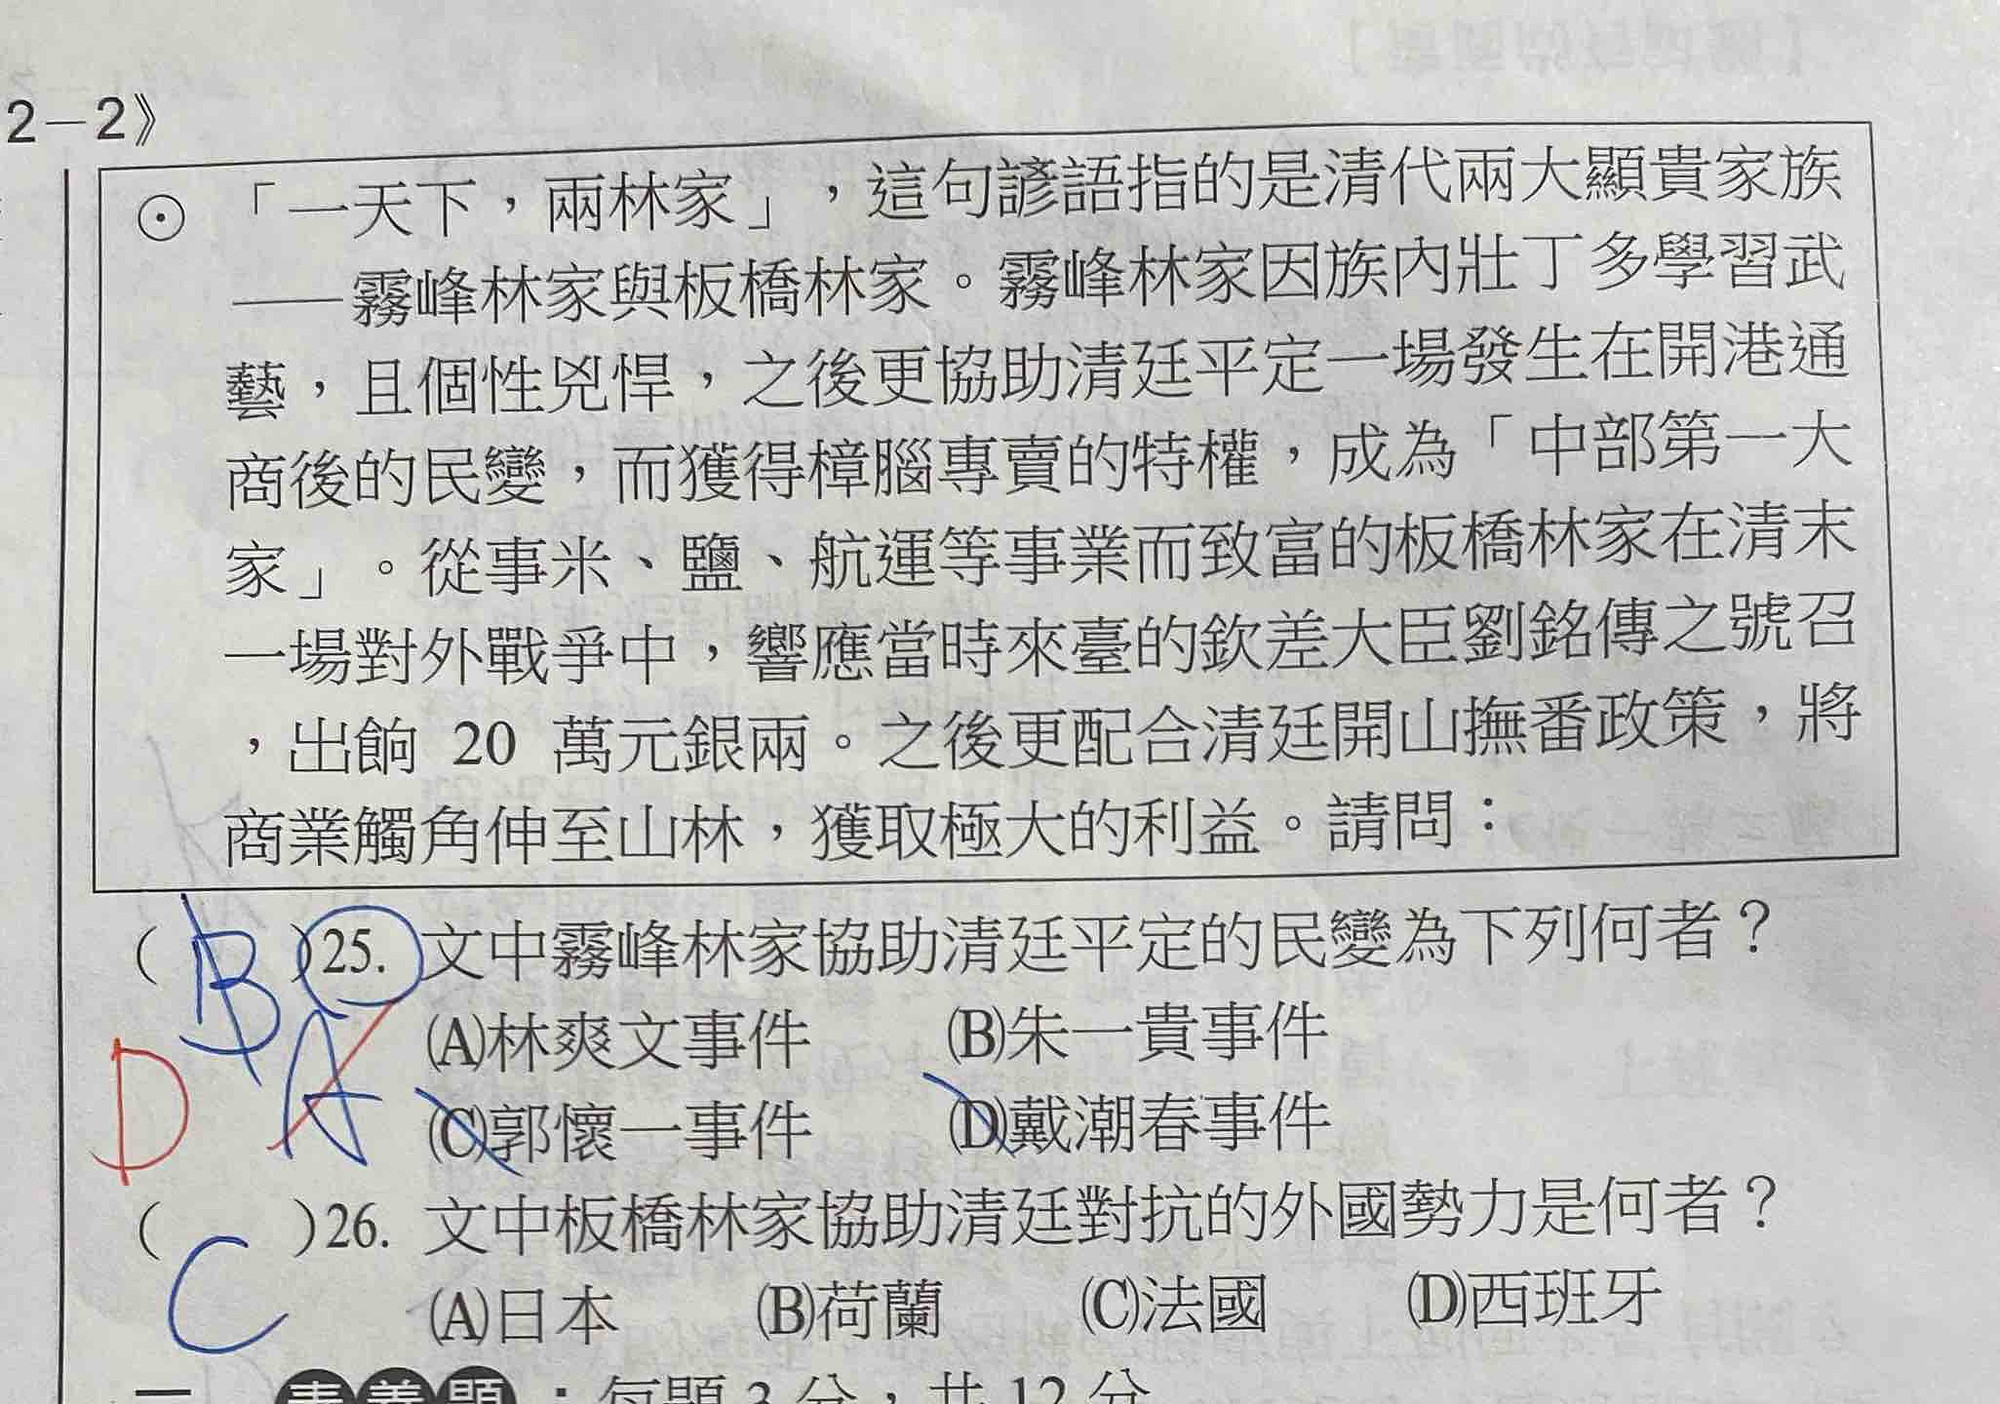 2－2》
⊙ 「一天下，兩林家」，這句諺語指的是清代兩大顯貴家族
——霧峰林家與板橋林家。霧峰林家因族內壯丁多學習武
藝，且個性兇悍，之後更協助清廷平定一場發生在開港通
商後的民變，而獲得樟腦專賣的特權，成為「中部第一大
家」。從事米、鹽、航運等事業而致富的板橋林家在清末
一場對外戰爭中，響應當時來臺的欽差大臣劉銘傳之號召
，出餉 20 萬元銀兩。之後更配合清廷開山撫番政策，將
商業觸角伸至山林，獲取極大的利益。請問：
( B )25. 文中霧峰林家協助清廷平定的民變為下列何者？
(A)林爽文事件 (B)朱一貴事件
D A
(C)郭懷一事件 (D)戴潮春事件
( C )26. 文中板橋林家協助清廷對抗的外國勢力是何者？
(A)日本 (B)荷蘭 (C)法國 (D)西班牙
二 素養題：每題 3 分，共 12 分